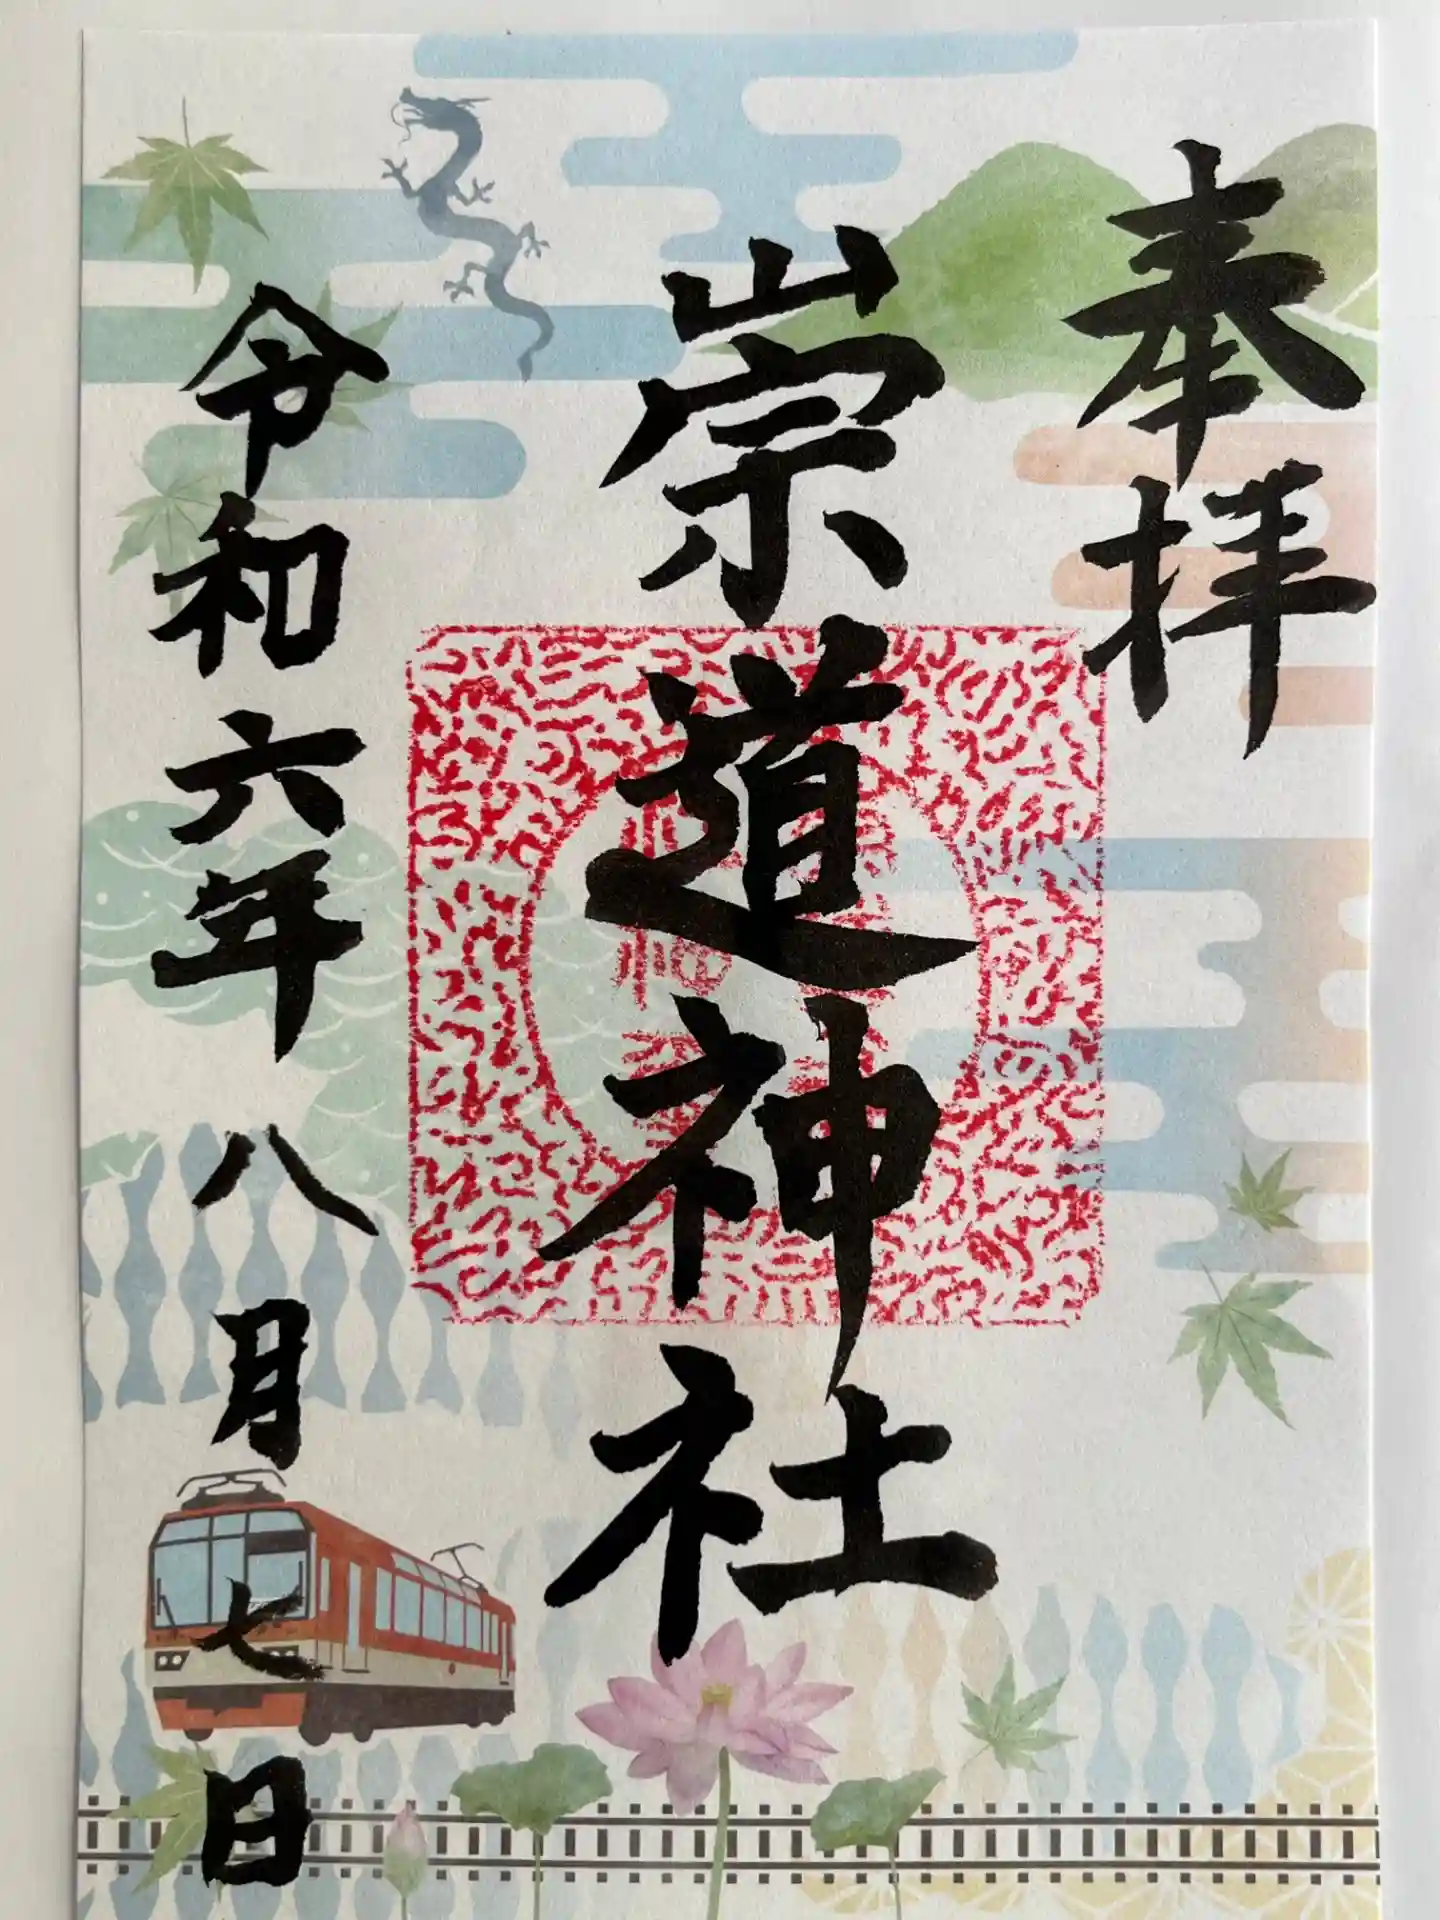 奉拝
崇道神社
令和六年八月七日